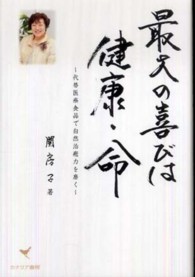 最大の喜びは
健康・命
~代替医療食品で自然治癒力を磨く~
関房子 著